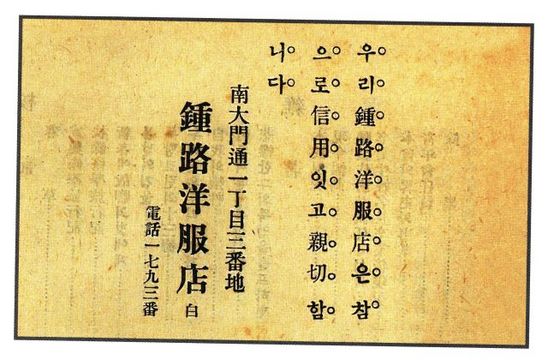 우리鍾路洋服店은참
으로信用잇고親切함
니다
南大門通一丁目三番地
鍾路洋服店 白
電話一七九三番